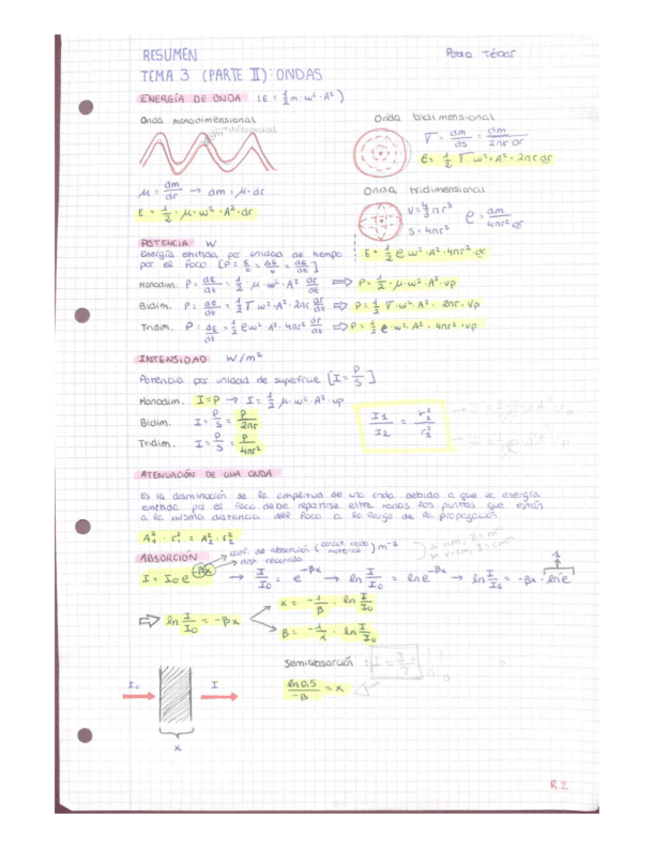 RESUMEN
TEMA 3 (PARTE II): ONDAS
ENERGÍA DE ONDA (E = 1/2 m · ω² · A²)
Onda monodimensional
diferencial
μ = dm/dr → dm = μ · dr
E = 1/2 · μ · ω² · A² · dr
Onda bidimensional
σ = dm/ds = dm/2πr dr
E = 1/2 σ ω² · A² · 2πr dr
Onda tridimensional
V = 4/3 πr³
S = 4πr²
ρ = dm/4πr² dr
E = 1/2 ρ ω² · A² · 4πr² · dr
POTENCIA W
Energía emitida por unidad de tiempo
por el foco [P = E/t = ΔE/t = dE/dt]
Monodim. P = dE/dt = 1/2 · μ · ω² · A² dr/dt ⇒ P = 1/2 · μ · ω² · A² · vp
Bidim. P = dE/dt = 1/2 σ ω² · A² · 2πr dr/dt ⇒ P = 1/2 σ · ω² · A² · 2πr · vp
Tridim. P = dE/dt = 1/2 ρ ω² · A² · 4πr² dr/dt ⇒ P = 1/2 ρ · ω² · A² · 4πr² · vp
INTENSIDAD W/m²
Potencia por unidad de superficie [I = P/S]
Monodim. I = P → I = 1/2 μ · ω² · A² · vp
Bidim. I = P/S = P/2πr
Tridim. I = P/S = P/4πr²
I1/I2 = r2²/r1²
ATENUACIÓN DE UNA ONDA
Es la disminución de la amplitud de una onda debido a que la energía
emitida por el foco debe repartirse entre todos los puntos que están
a la misma distancia del foco a lo largo de la propagación.
A1² · r1² = A2² · r2²
ABSORCIÓN
coef. de absorción (caract. cada material) m⁻¹
dist. recorrida
I = I0 e^-βx → I/I0 = e^-βx → ln I/I0 = ln e^-βx → ln I/I0 = -βx · ln e
1
⇒ ln I/I0 = -βx
x = -1/β · ln I/I0
β = -1/x · ln I/I0
Semiabsorción : I = I/2
ln 0,5/-β = x
I0
I
x
R.2